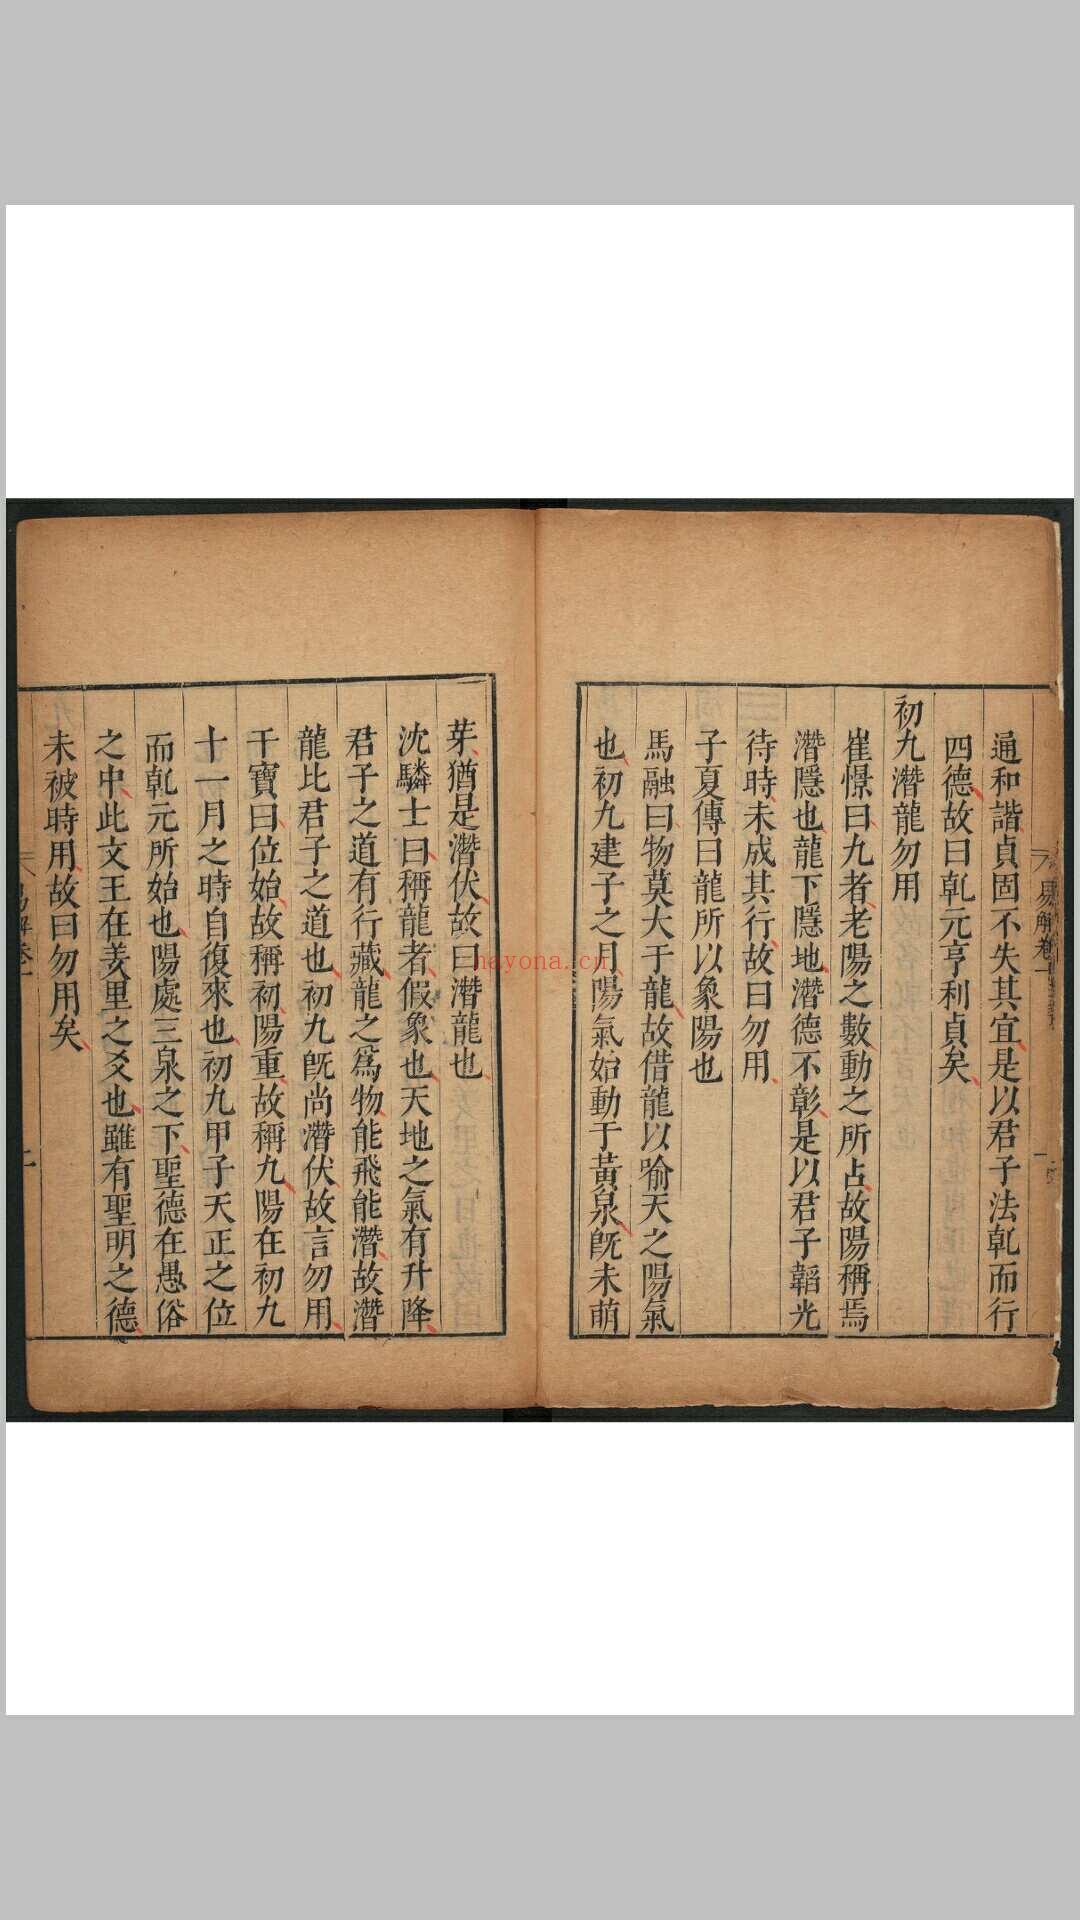 通和諧貞固不失其宜是以君子法乹而行
四德故曰乹元亨利貞矣
初九潛龍勿用
崔憬曰九者老陽之數動之所占故陽稱焉
潛隱也龍下隱地潛德不彰是以君子韜光
待時未成其行故曰勿用
子夏傳曰龍所以象陽也
馬融曰物莫大于龍故借龍以喻天之陽氣
也初九建子之月陽氣始動于黃泉旣未萌
芽猶是潛伏故曰潛龍也
沈驎士曰稱龍者假象也天地之氣有升降
君子之道有行藏龍之爲物能飛能潛故潛
龍比君子之道也初九旣尚潛伏故言勿用
干寶曰位始故稱初陽重故稱九陽在初九
十一月之時自復來也初九甲子天正之位
而乹元所始也陽處三泉之下聖德在愚俗
之中此文王在羑里之爻也雖有聖明之德
未被時用故曰勿用矣
易解卷一
hayona.cn